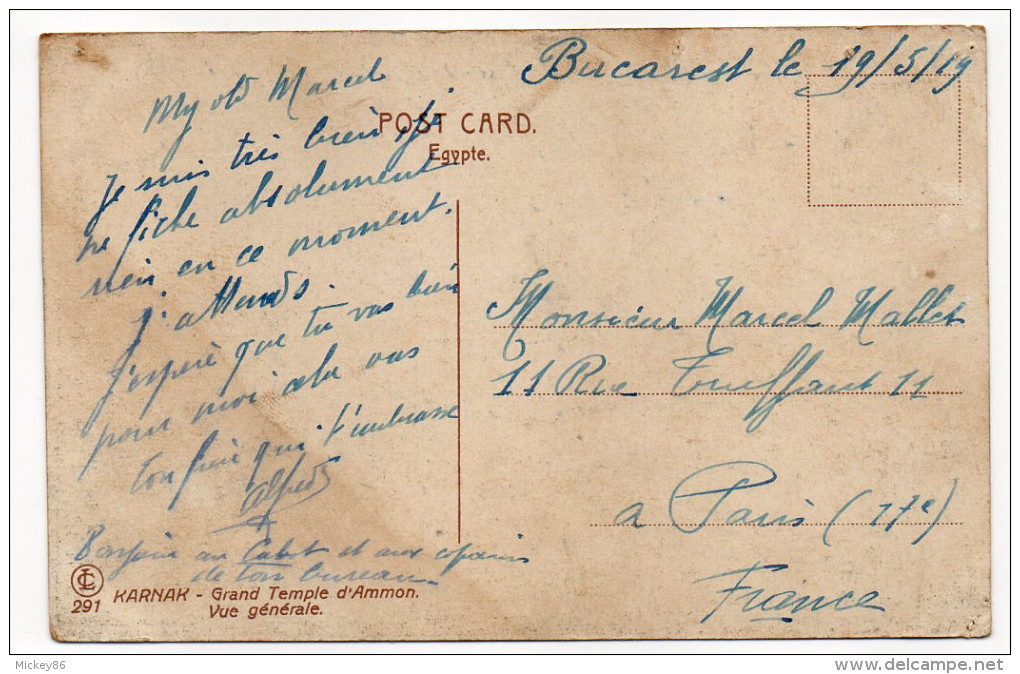 Bucarest le 19/5/19
My old Marcel
POST CARD.
Egypte.
Je suis très bien je
ne fiche absolument
rien en ce moment.
j'attends.
J'espère que tu vas bien
pour moi cela vas
ton frère qui t'embrasse
Alfred
Bonjour au Cabot et aux copains
de ton bureau
Monsieur Marcel Mallet
11 Rue Truffaut 11
a Paris (17e)
France
LC
291
KARNAK - Grand Temple d'Ammon.
Vue générale.
Mickey86
www.delcampe.net